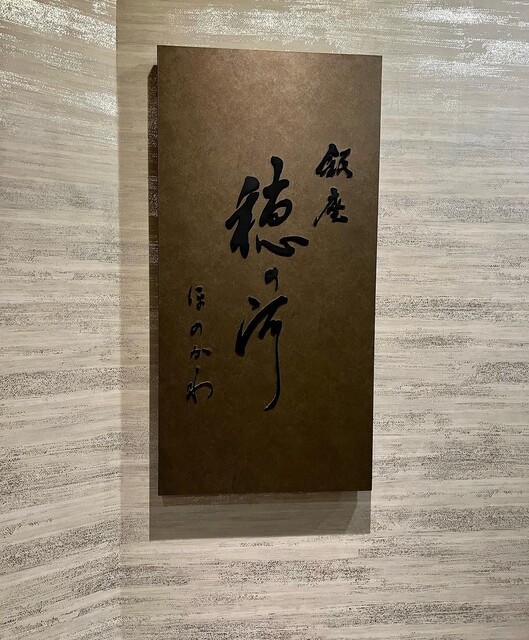 飯座
穂の河
ほのかわ